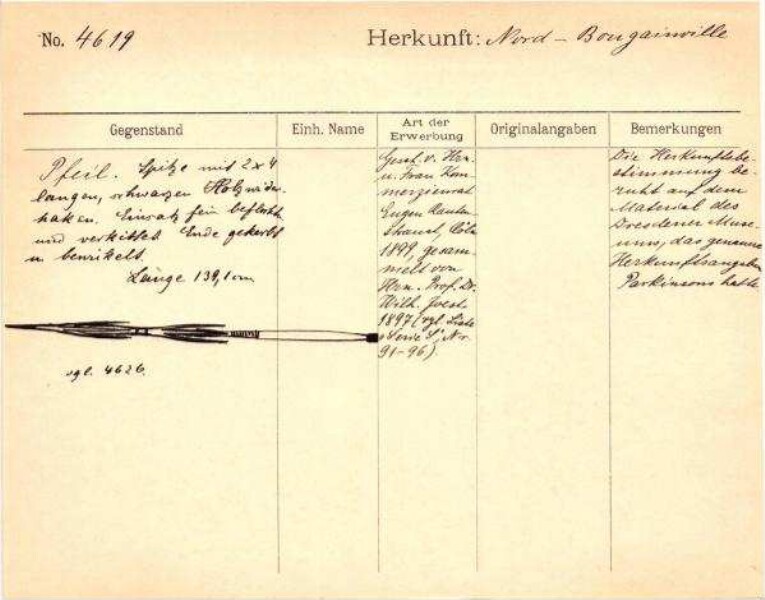 No. 4619
Herkunft: Nord - Bougainville
Gegenstand
Einh. Name
Art der Erwerbung
Originalangaben
Bemerkungen
Pfeil. Spitze mit 2x4
langen, schwarzen Holzwider-
haken. Einsatz fein beflochten
und verkittet. Ende gekerbt
u bewickelt.
Länge 139,1 cm
vgl. 4626.
Gesch. v. Hrn.
u. Frau Kom-
merzienrat
Eugen Rauten-
strauch, Cöln
1899, gesam-
melt von
Hrn. Prof. Dr.
Wilh. Joest
1897 (vgl. Liste
Serie S, Nr.
91-96).
Die Herkunftsbe-
stimmung be-
ruht auf dem
Material des
Dresdener Muse-
ums, das genaue
Herkunftsangaben
Parkinsons hatte